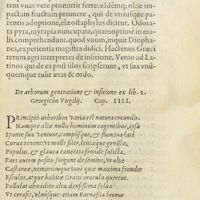 impactam fructum promere, qui de vtriusque pa
rentis adoptione, possit dici. Odora
ta pyra, myrapia nuncupata, in ma
lis comprehendendo: quod vnum, inquit Diopha
nes, experientia magistra didici. Hactenus Græci
terum agri interpretes de insitione. Venio ad La
tinos qui de ea post illos scripserunt, vt sua vnũ
quemque ætas & ordo.
De arborum generatione & insitione ex lib. 2.
Georgicôn Virgilij. Cap. IIII.
PRincipiò arboribus varia est natura creandis.
Namque aliæ nullis hominum cogentibus, ipsæ
Sponte sua veniunt, camposq; & flumina latè
Curua tenent: vt molle siler, lentæq; genistæ,
Populus, & glauca canentia fronde salicta.
Pars autem posito surgunt de semine, vt altæ
Castaneæ, nemorumq; Ioui quæ maxima frondet
Aesculus, atque habitæ Graiis oracula quercus.
Pullulat ab radice aliis densissima silua
Vt cerasis, vlmisque: etiam Parnasia laurus